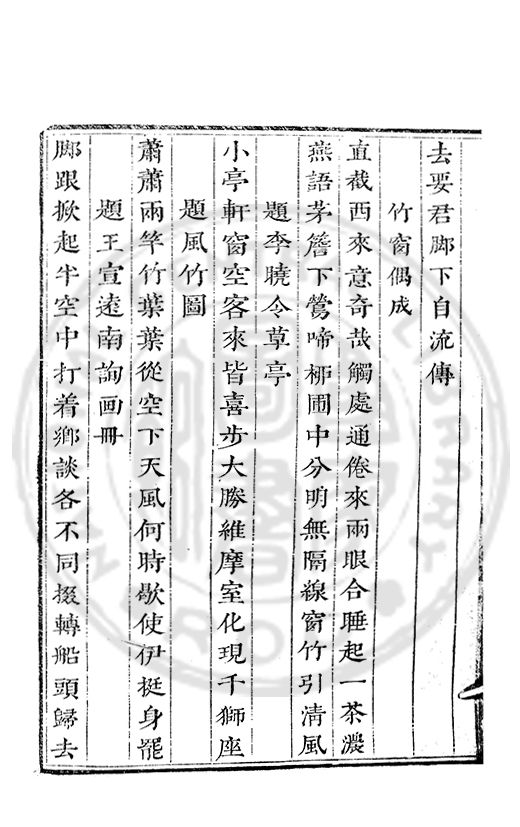 去要君脚下自流傳
竹窗偶成
直截西來意奇哉觸處通倦來兩眼合睡起一茶濃
燕語茅簷下鶯啼栁圃中分明無隔線窗竹引清風
題李曉令草亭
小亭軒窗空客來皆喜步大勝維摩室化現千獅座
題風竹圖
蕭蕭兩竿竹葉葉從空下天風何時歇使伊挺身罷
題王宣遠南詢画冊
脚跟掀起半空中打着鄉談各不同掇轉船頭歸去